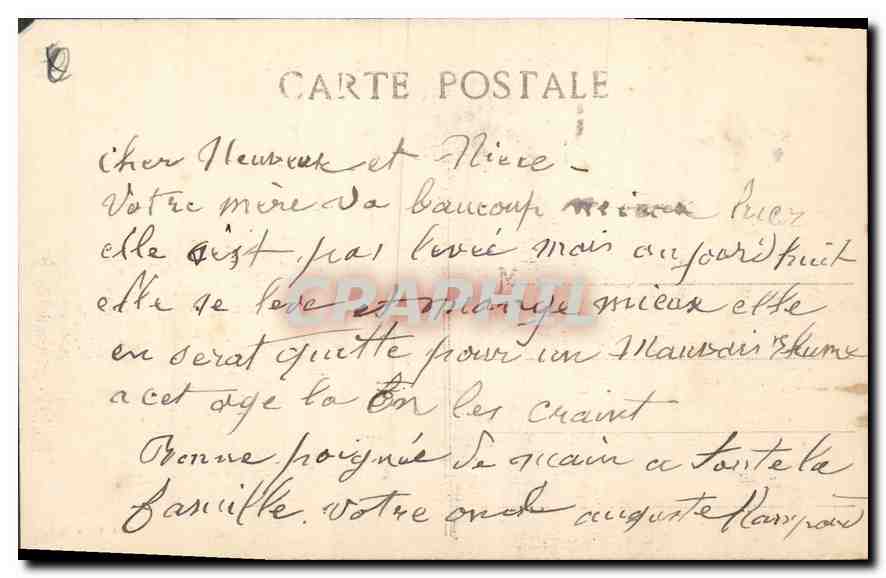 CARTE POSTALE
Cher Neuveux et Niece
Votre mère va baucoup mieux hier
elle s'ést pas levée mais aujourd'huit
elle se leve et mange mieux elle
en serat quitte pour un Mauvais Rhume
a cet age la on les craint
Bonne poignée de main a toute la
famille. Votre oncle auguste
CPAPHIL